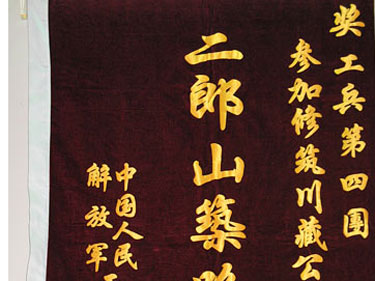 奖工兵第四團
参加修筑川藏公
二郎山築
中国人民
解放军